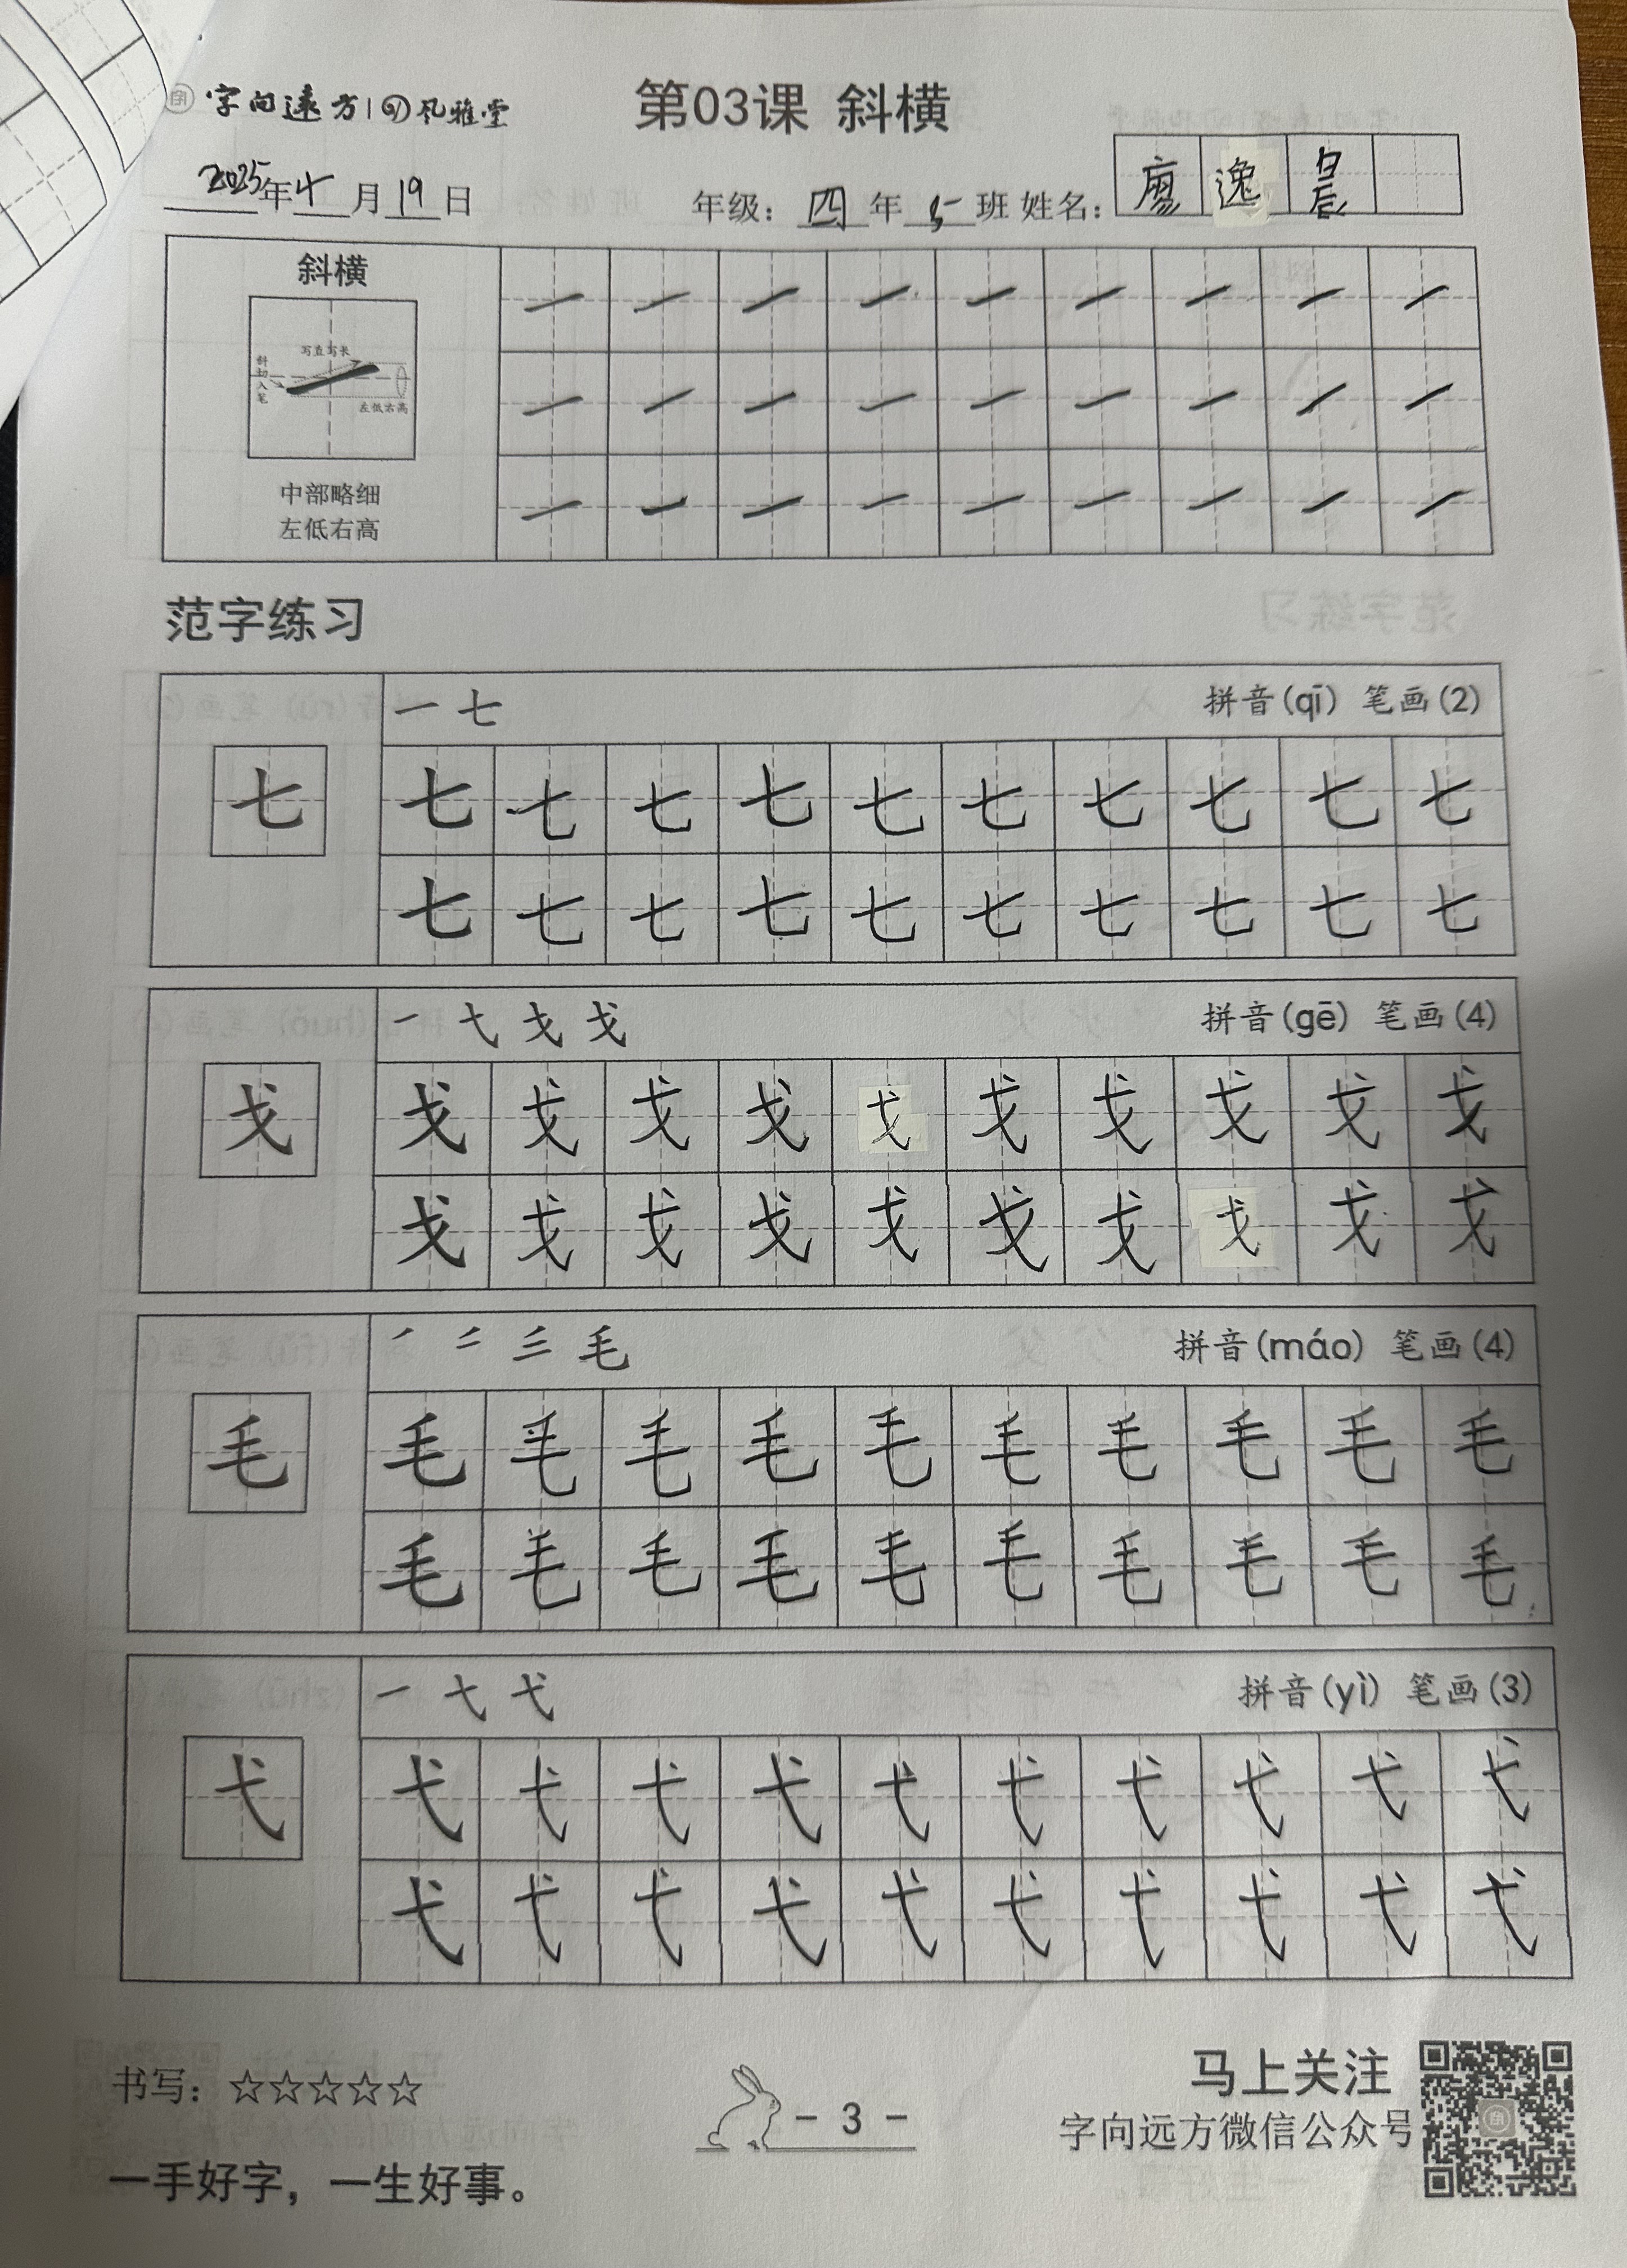 字向远方 风雅堂
第03课 斜横
2025年4月19日 年级：四年5班 姓名：廖逸晨
斜横
写直写长
斜切入笔
左低右高
中部略细
左低右高
范字练习
一 七 拼音(qī) 笔画(2)
七 七 七 七 七 七 七 七 七 七 七
七 七 七 七 七 七 七 七 七 七
拼音(gē) 笔画(4)
戈 戈 戈 戈 戈 戈 戈 戈 戈 戈 戈
戈 戈 戈 戈 戈 戈 戈 戈 戈 戈
毛 拼音(máo) 笔画(4)
毛 毛 毛 毛 毛 毛 毛 毛 毛 毛 毛
毛 毛 毛 毛 毛 毛 毛 毛 毛 毛
弋 拼音(yì) 笔画(3)
弋 弋 弋 弋 弋 弋 弋 弋 弋 弋 弋
弋 弋 弋 弋 弋 弋 弋 弋 弋 弋
书写：☆☆☆☆☆
一手好字，一生好事。
- 3 -
马上关注
字向远方微信公众号